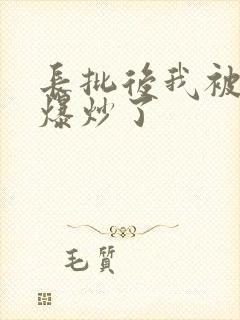 長批後我被
爆炒了
毛質